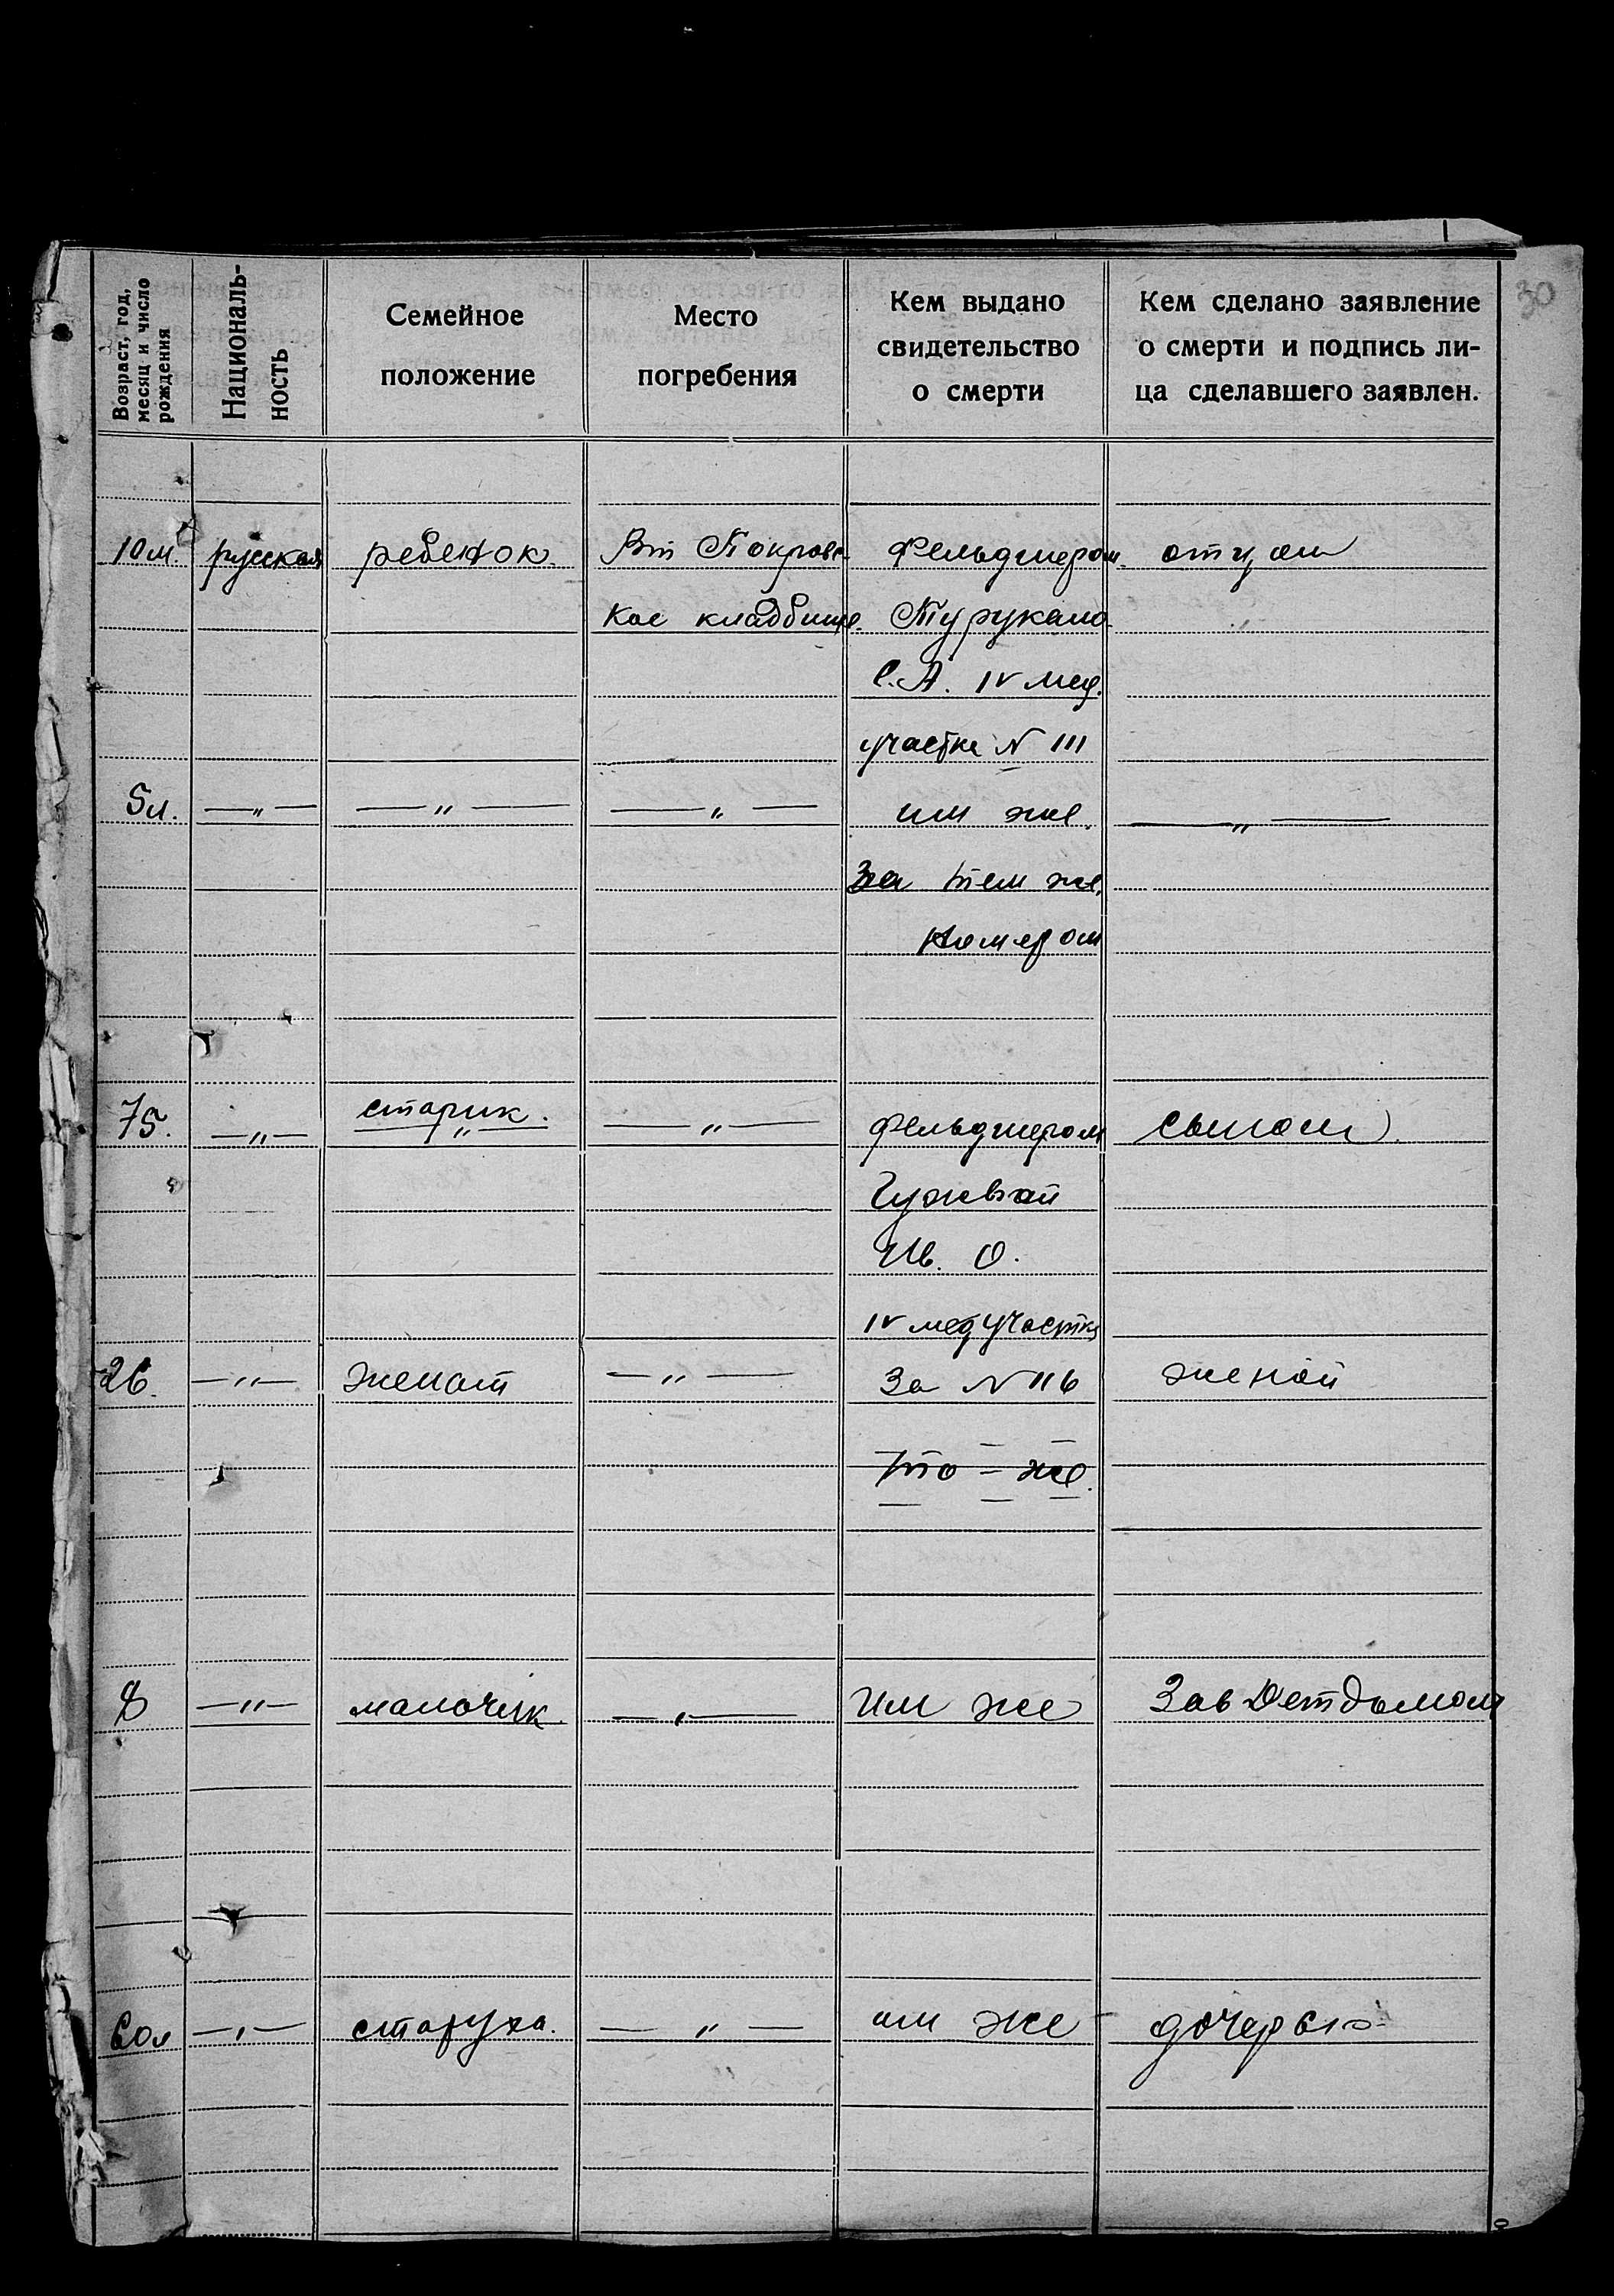 30
Возраст, год,
месяц и число
рождения
Националь-
ность
Семейное
положение
Место
погребения
Кем выдано
свидетельство
о смерти
Кем сделано заявление
о смерти и подпись ли-
ца сделавшего заявлен.
10 м. русская ребенок. Покровс- Фельдшером отцом
кое кладбище.
С. А. IV мед.
участка N 111
5 л. —„— —„— —„— им же. —„—
За тем же.
номером
75. —„— старик. —„— —„— фельдшером сыном
Гужвой
Ив. О.
IV медучастка
26. —„— женат —„— За N 116 женой
то-же.
8 —„— малочик. —„— Им же Зав Детдомом
60 л —„— старуха. —„— им же дочерью